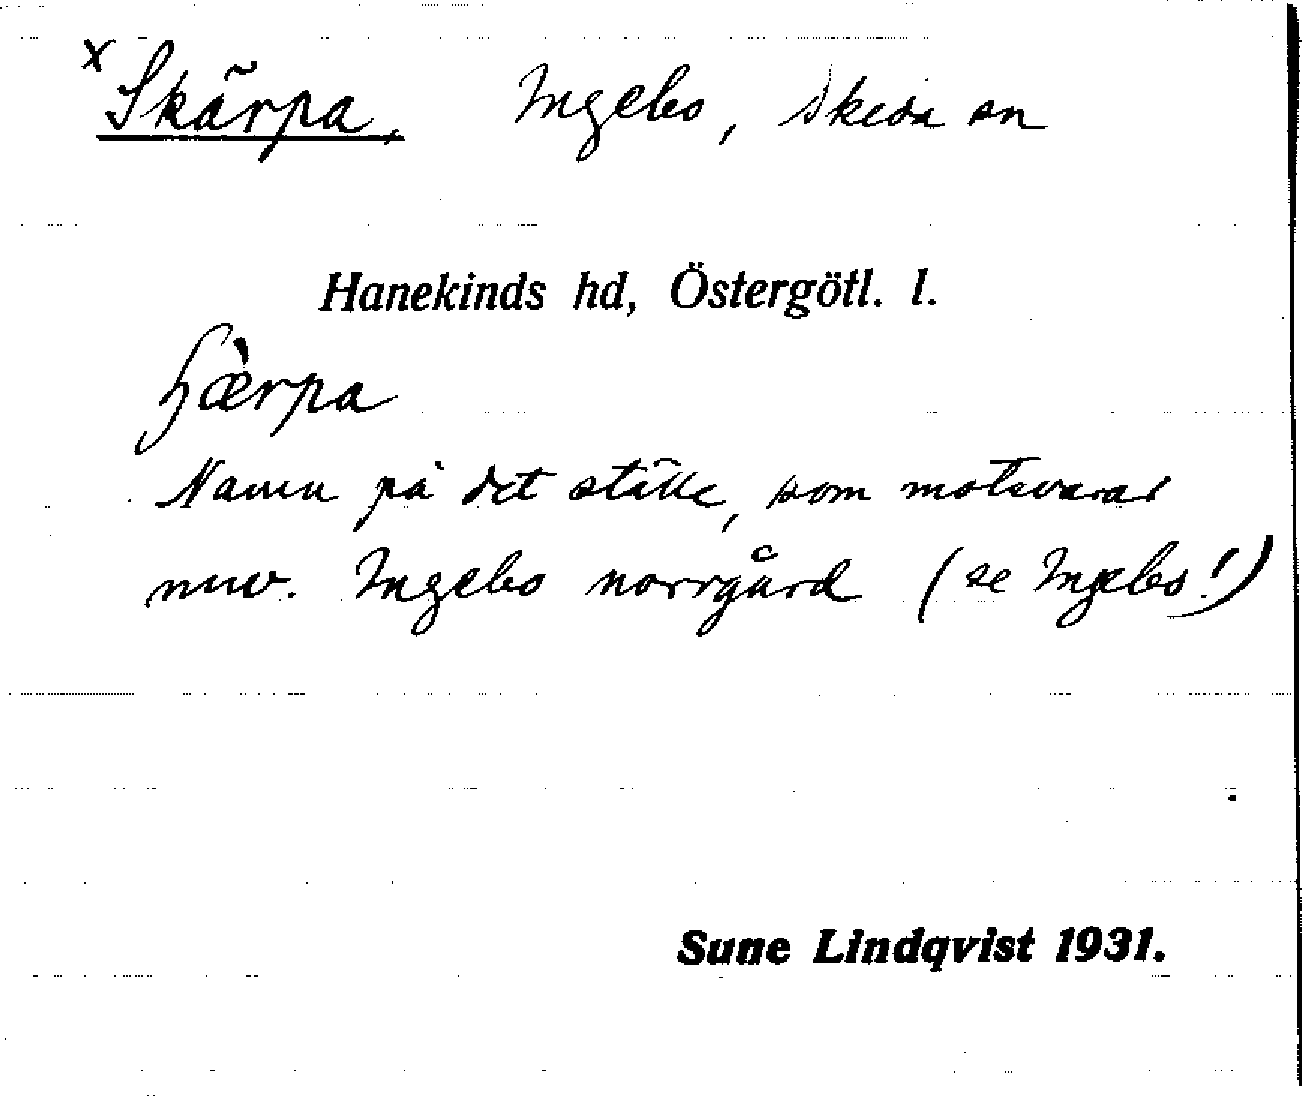 x Skärpa, Ingebo, Skeda sn
Hanekinds hd, Östergötl. l.
ɧæ̀rpa
Namn på det ställe, som motsvarar
nuv. Ingebo norrgård (se Ingebo!)
Sune Lindqvist 1931.